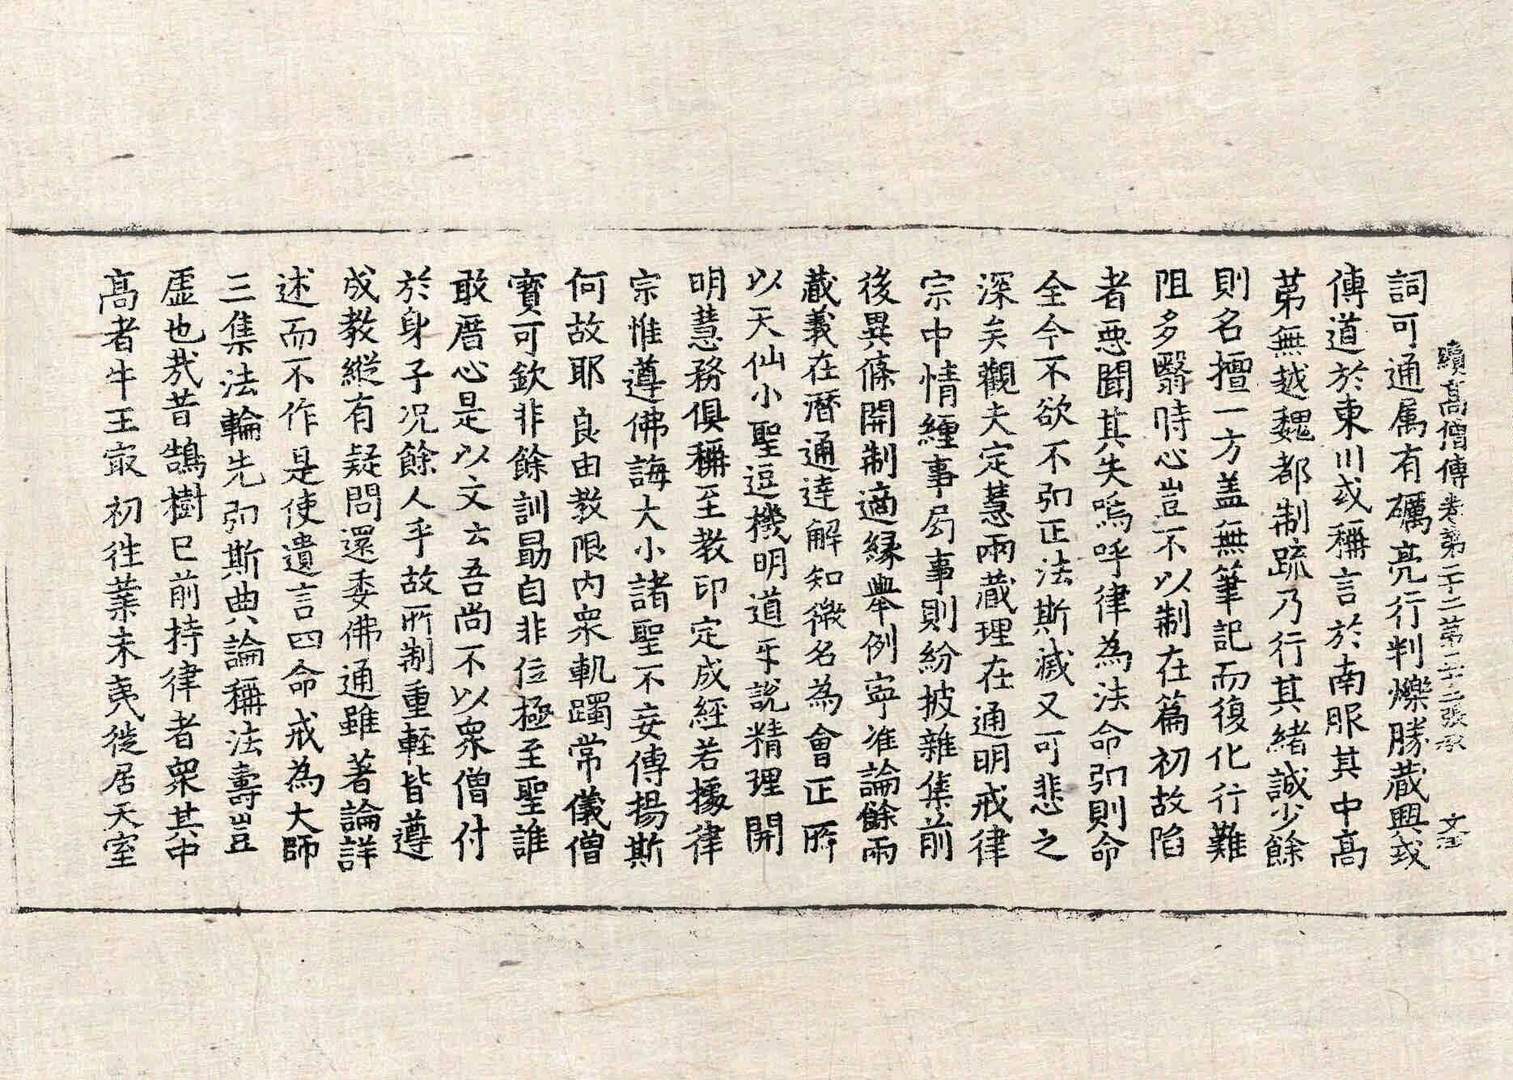 續高僧傳卷第二十二第二十二張承
詞可通属有礪亮行判爍勝藏興或
傳道於東川或稱言於南服其中高
第無越魏都制疏乃行其緒誠少餘
則名擅一方盖無筆記而復化行難
阻多翳時心豈不以制在篇初故陷
者惡聞其失嗚呼律為法命弘則命
全今不欲不弘正法斯滅又可悲之
深矣觀夫定慧兩藏理在通明戒律
宗中情纏事局事則紛披雜集前
後異條開制適緣舉例寧准論餘兩
藏義在曆通達解知微名為會正所
以天仙小聖逗機明道互說精理開
明慧務俱稱至教印定成經若據律
宗惟遵佛誨大小諸聖不妄傳揚斯
何故耶良由教限內衆軌躅常儀僧
寳可欽非餘訓勗自非位極至聖誰
敢厝心是以文云吾尚不以衆僧付
於身子况餘人乎故所制重輕皆遵
成教縱有疑問還委佛通雖著論詳
述而不作是使遺言四命戒為大師
三集法輪先弘斯典論稱法壽豈
虛也哉昔鵠樹已前持律者衆其中
高者牛王㝡初往業未夷徙居天室